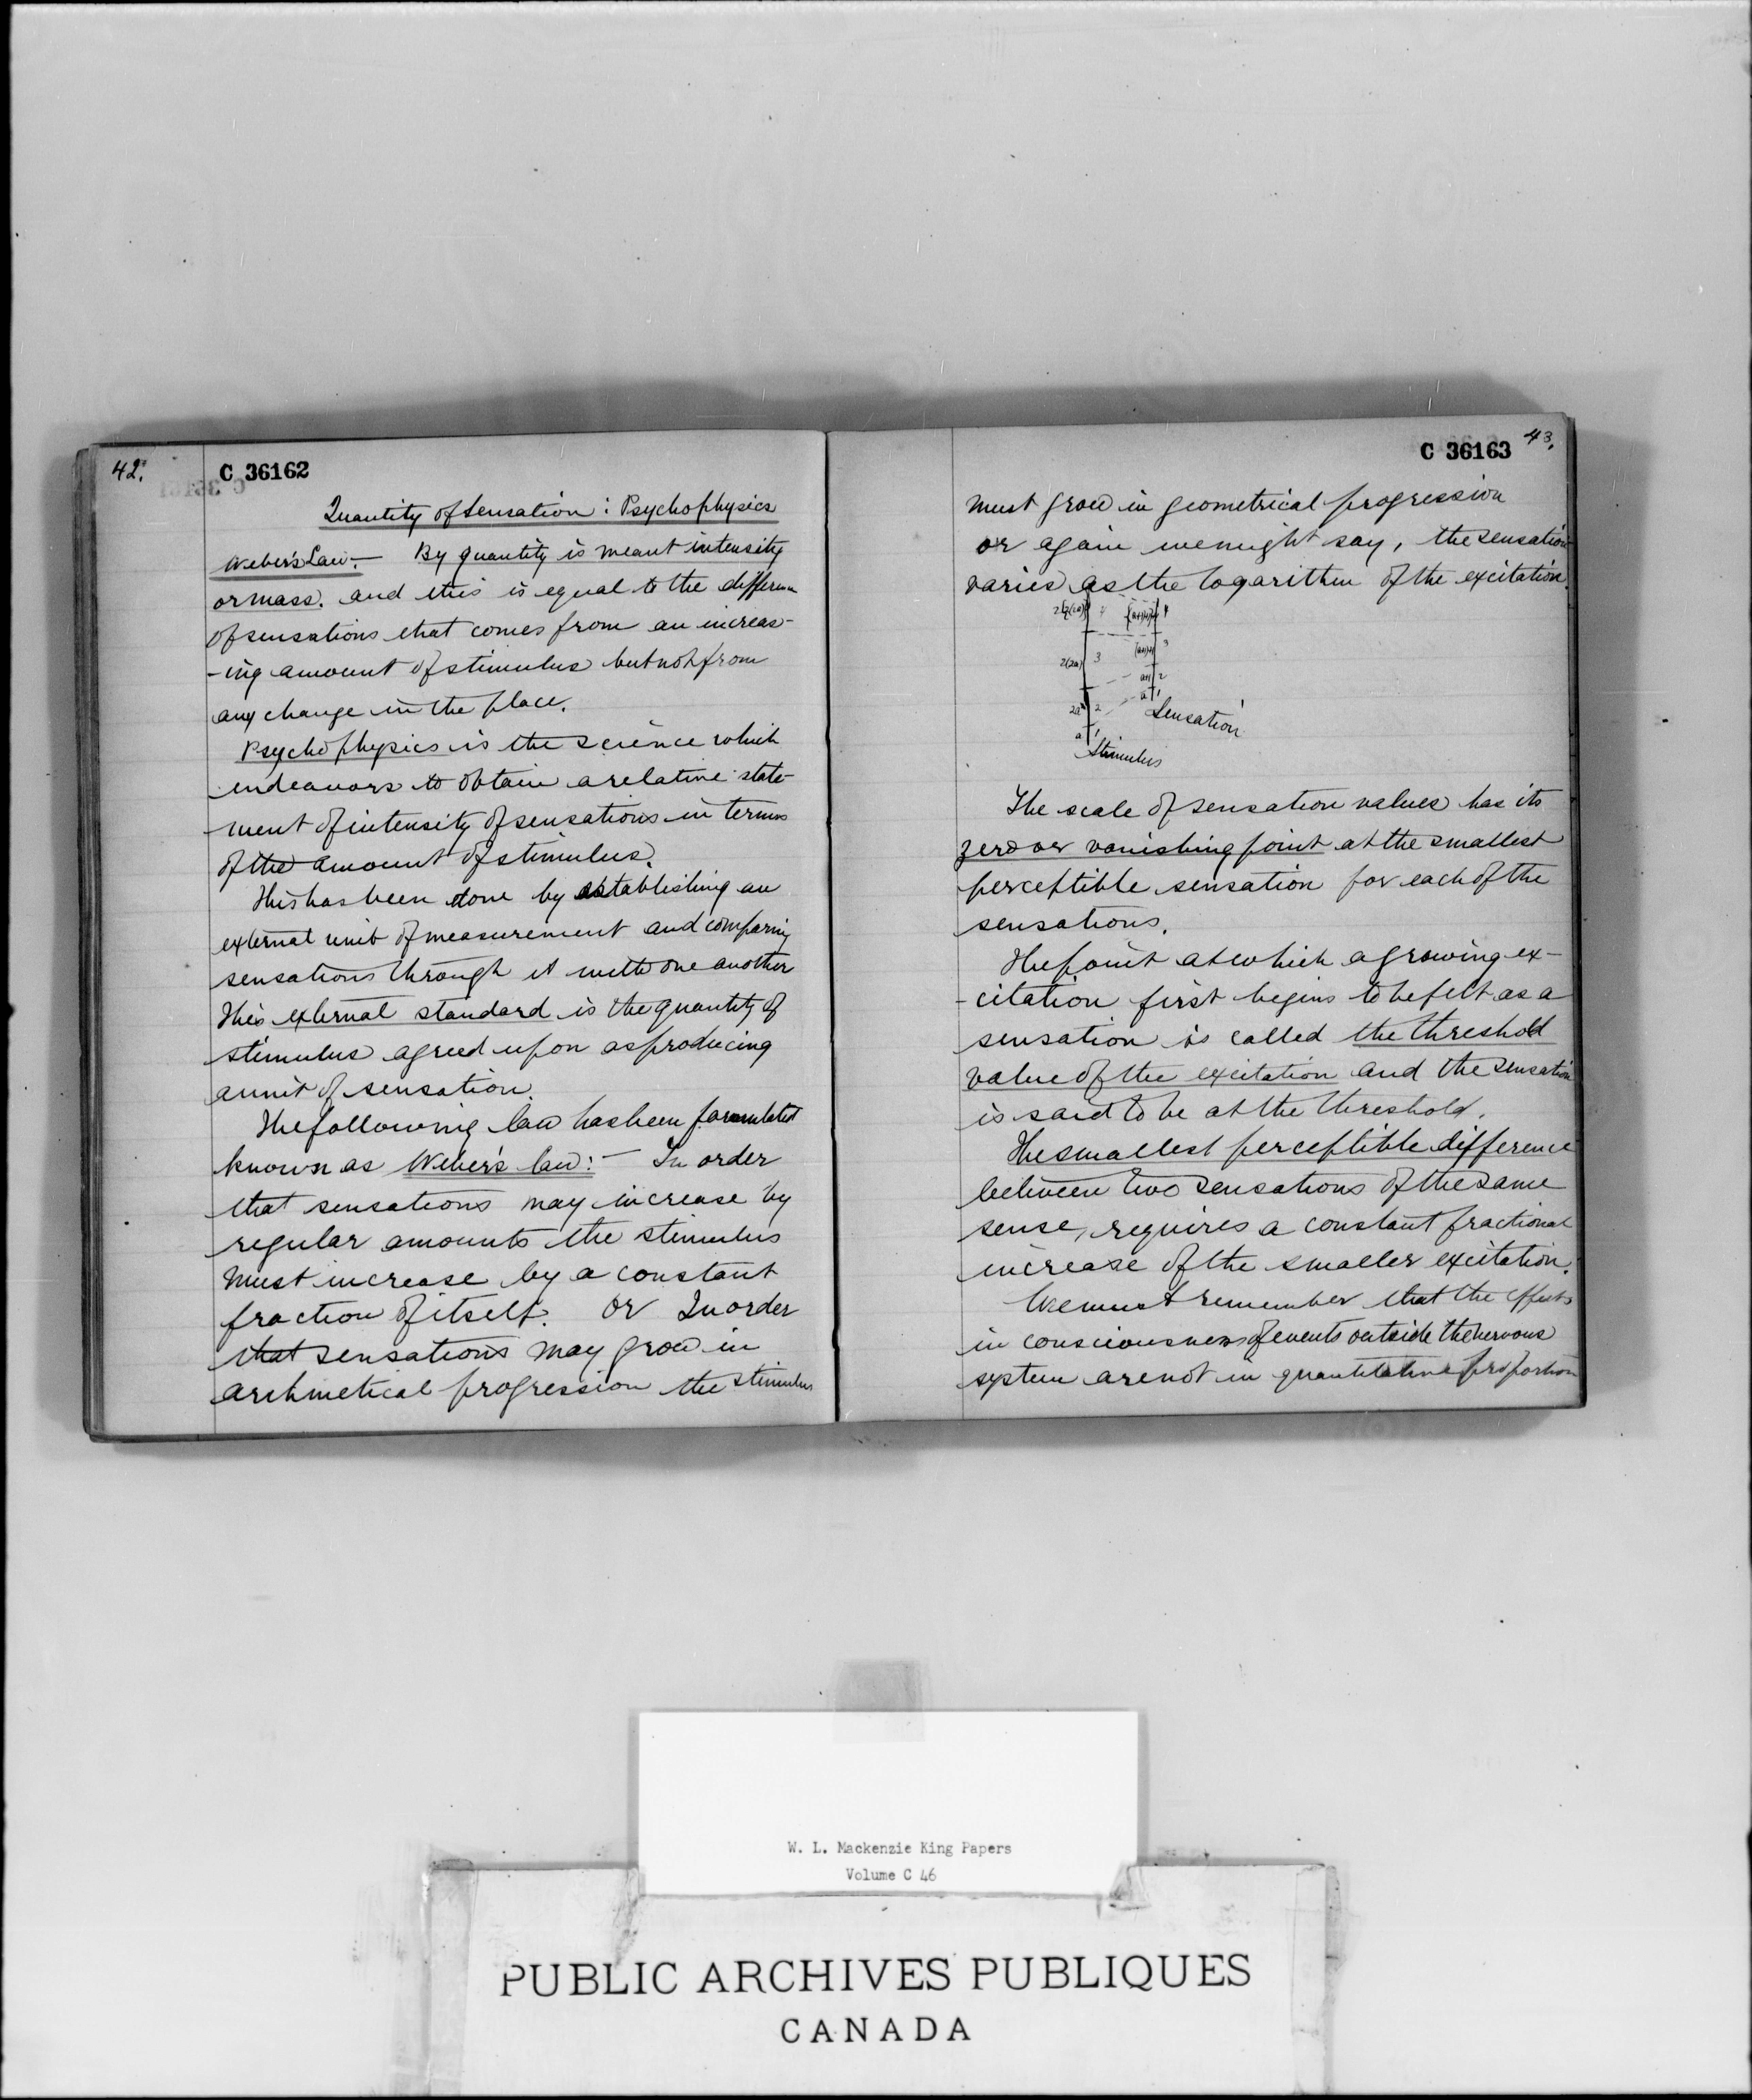 42.
C 36162
Quantity of Sensation : Psychophysics
Weber's Law.- By quantity is meant intensity
or mass. and this is equal to the differen
of sensations that comes from an increas-
-ing amount of stimulus but not from
any change in the place.
Psychophysics is the science which
endeavors to obtain a relative state-
ment of intensity of sensations in terms
of the amount of stimulus.
This has been done by establishing an
external unit of measurement and comparing
sensations through it with one another
This external standard is the quantity of
stimulus agreed upon as producing
a unit of sensation.
The following law has been formulated
known as Weber's law: - In order
that sensations may increase by
regular amounts the stimulus
must increase by a constant
fraction of itself. Or In order
that sensations may grow in
arithmetical progression the stimulus
43.
C 36163
must grow in geometrical progression
or again we might say, the sensation
varies as the logarithm of the excitation.
4
4
2(2a) 3
3
2
2a 2
a 1
a 1
Sensation
Stimulus
The scale of sensation values has its
zero or vanishing point at the smallest
perceptible sensation for each of the
sensations.
The point at which a growing ex-
-citation first begins to be felt as a
sensation is called the threshold
value of the excitation and the sensation
is said to be at the threshold.
The smallest perceptible difference
between two sensations of the same
sense, requires a constant fractional
increase of the smaller excitation.
We must remember that the effects
in consciousness of events outside the nervous
system are not in quantitative proportion
W. L. Mackenzie King Papers
Volume C 46
PUBLIC ARCHIVES PUBLIQUES
CANADA